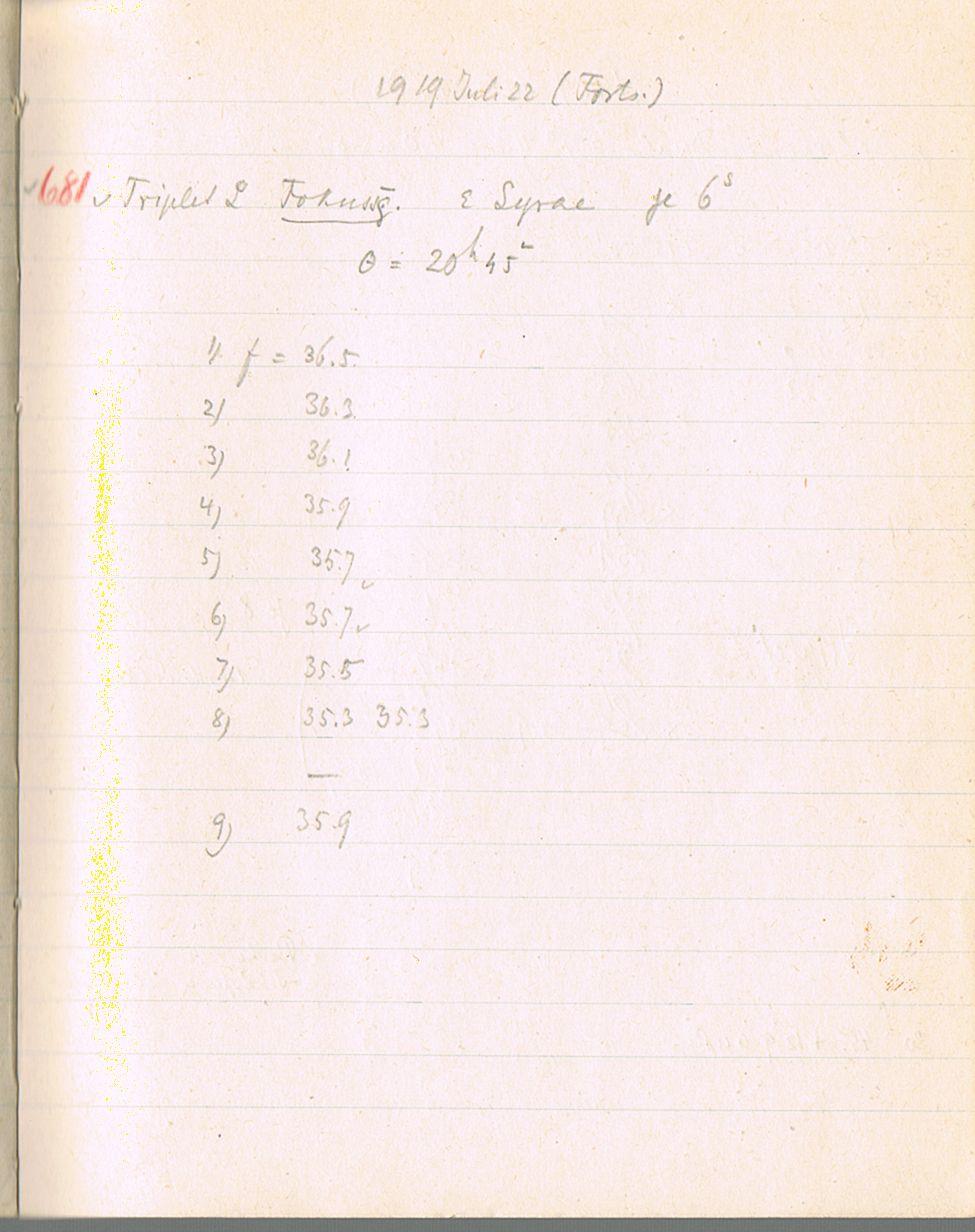 1919 Juli 22 (Forts.)
681 Triplet Fokussg. ε Lyrae je 6ˢ
θ = 20ʰ 45ᵐ
1) f = 36.5
2) 36.3
3) 36.1
4) 35.9
5) 35.7
6) 35.7
7) 35.5
8) 35.3 35.3
—
9) 35.9